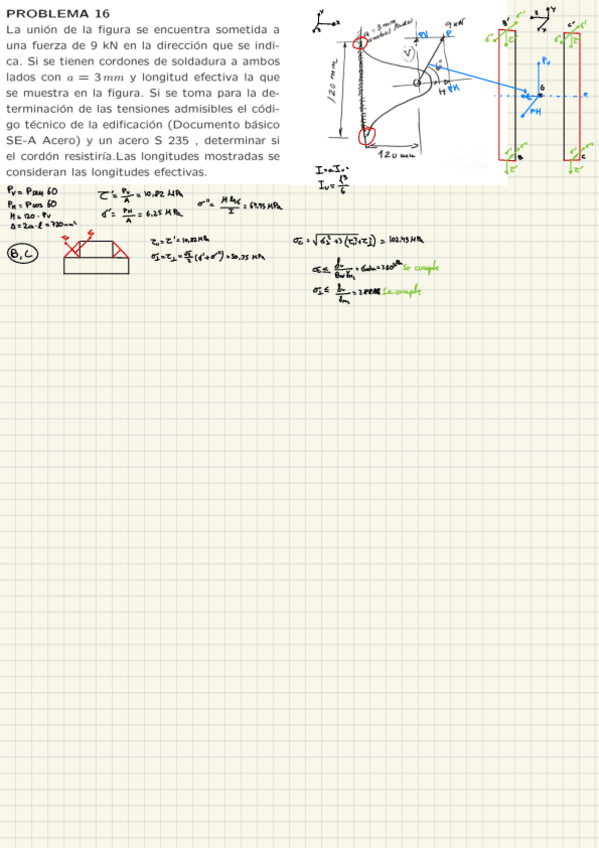 PROBLEMA 16
La unión de la figura se encuentra sometida a
una fuerza de 9 kN en la dirección que se indi-
ca. Si se tienen cordones de soldadura a ambos
lados con a = 3 mm y longitud efectiva la que
se muestra en la figura. Si se toma para la de-
terminación de las tensiones admisibles el códi-
go técnico de la edificación (Documento básico
SE-A Acero) y un acero S 235 , determinar si
el cordón resistiría.Las longitudes mostradas se
consideran las longitudes efectivas.
a = 3 mm
9 kN
PV P
V
H PH
120 mm
120 mm
B' C'
PV
G
PH
B C
I = a·Iᵤ·
Iᵤ = l³/6
Pv = P sen 60
PH = P cos 60
M = 120 · Pv
A = 2a·l = 720 mm²
τ' = Pv/A = 10,82 MPa
σ' = PH/A = 6,25 MPa
B, C
τ₁₁ = τ' = 10,82 MPa
Se cumple
Se cumple